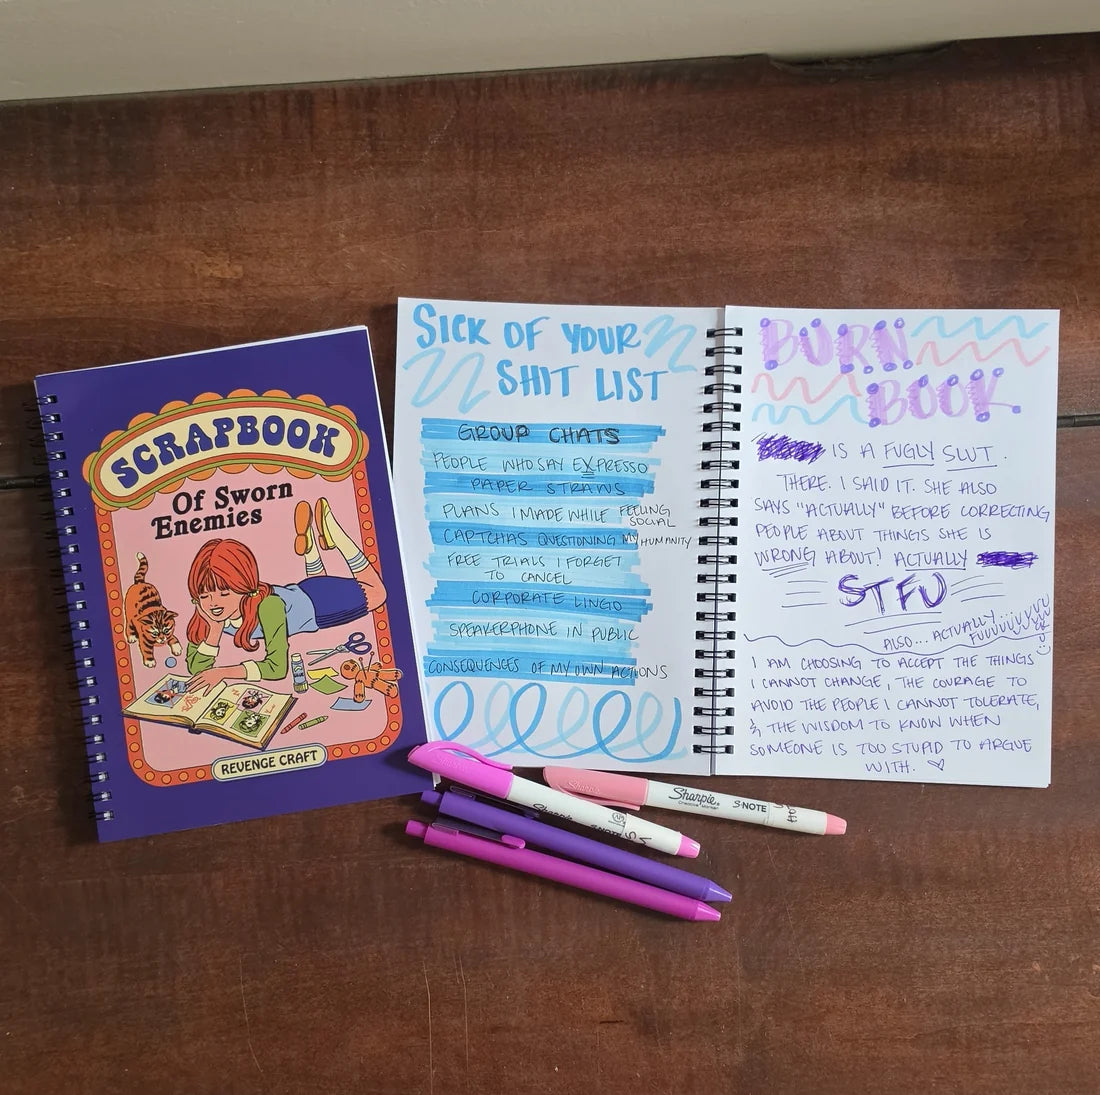 SCRAPBOOK
Of Sworn
Enemies
REVENGE CRAFT
SICK OF YOUR
SHIT LIST
GROUP CHATS
PEOPLE WHO SAY EXPRESSO
PAPER STRAWS
PLANS I MADE WHILE FEELING
SOCIAL
CAPTCHAS QUESTIONING MY HUMANITY
FREE TRIALS I FORGET
TO CANCEL
CORPORATE LINGO
SPEAKERPHONE IN PUBLIC
CONSEQUENCES OF MY OWN ACTIONS
BURN
BOOK
IS A FUGLY SLUT.
THERE. I SAID IT. SHE ALSO
SAYS "ACTUALLY" BEFORE CORRECTING
PEOPLE ABOUT THINGS SHE IS
WRONG ABOUT! ACTUALLY
STFU
ALSO... ACTUALLY
I AM CHOOSING TO ACCEPT THE THINGS
I CANNOT CHANGE, THE COURAGE TO
AVOID THE PEOPLE I CANNOT TOLERATE,
& THE WISDOM TO KNOW WHEN
SOMEONE IS TOO STUPID TO ARGUE
WITH. ♡
Sharpie
S·NOTE
Sharpie
Creative Marker
S·NOTE